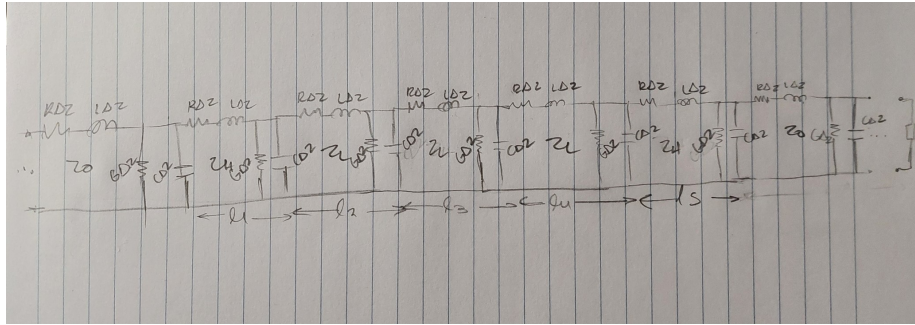 RΔZ LΔZ RΔZ LΔZ RΔZ LΔZ RΔZ LΔZ RΔZ LΔZ RΔZ LΔZ RΔZ LΔZ
... Z0 GΔZ CΔZ ZH GΔZ CΔZ ZL GΔZ CΔZ ZL GΔZ CΔZ ZL GΔZ CΔZ ZH GΔZ CΔZ Z0 GΔZ CΔZ ...
l1 l2 l3 l4 l5